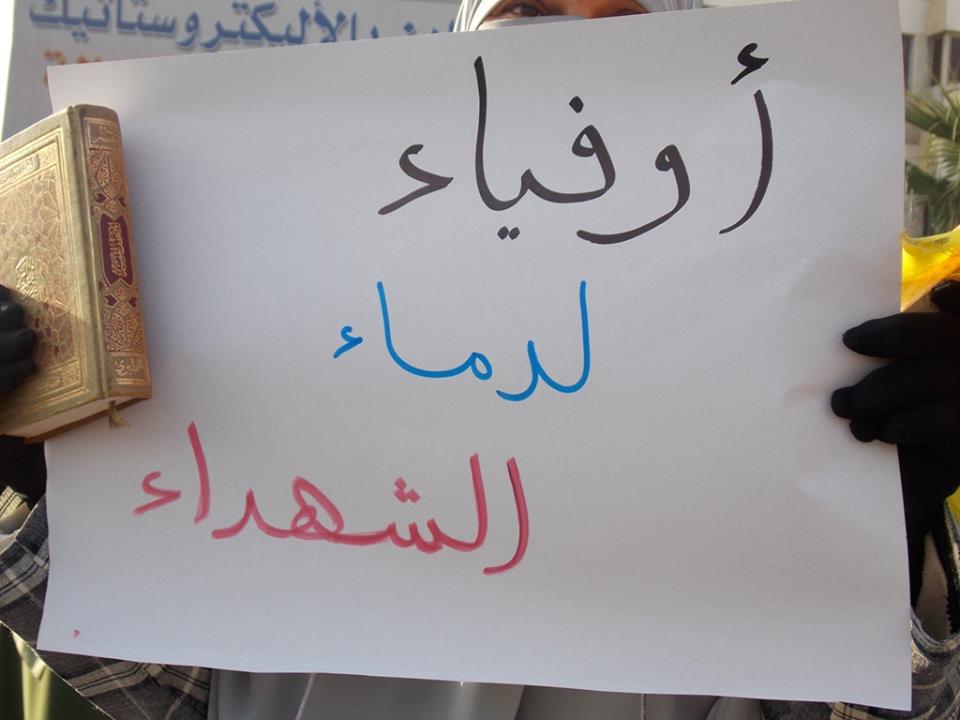 الأليكتروستاتيك
أوفياء
لدماء
الشهداء